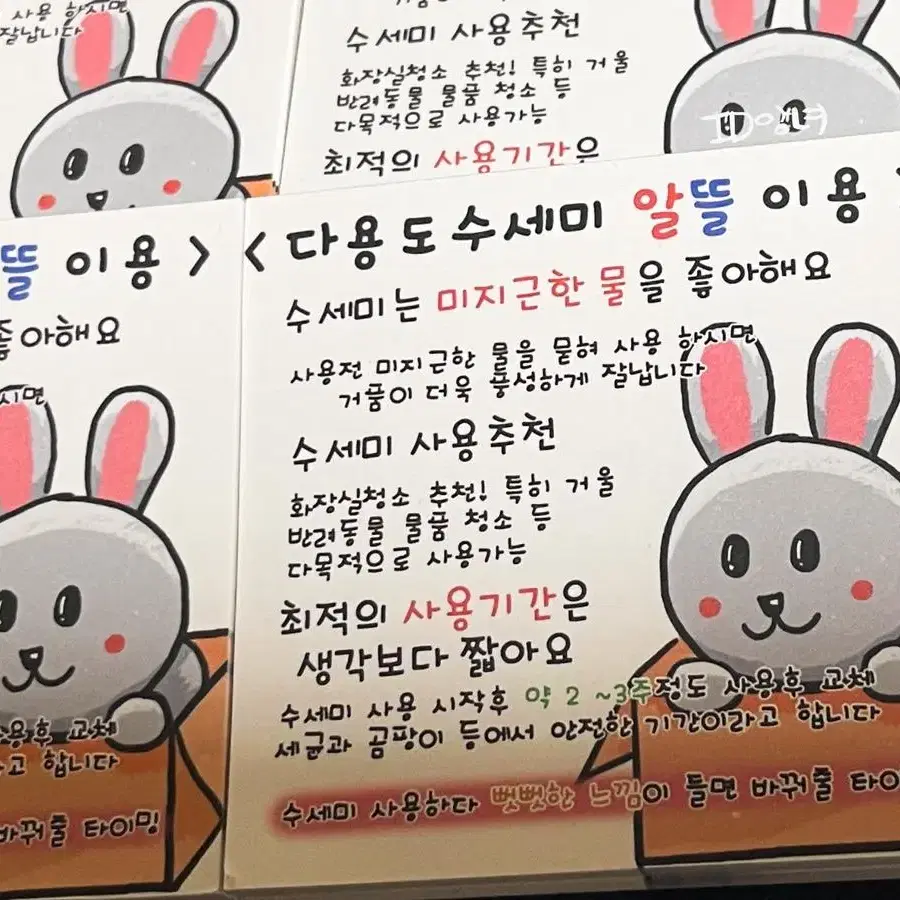 사용 하시면
잘납니다
수세미 사용추천
화장실청소 추천! 특히 거울
반려동물 물품 청소 등
다목적으로 사용가능
최적의 사용기간은
뜰 이용 >
좋아해요
시면
사용후 교체
고 합니다
바꿔줄 타이밍
< 다용도수세미 알뜰 이용 >
수세미는 미지근한 물을 좋아해요
사용전 미지근한 물을 묻혀 사용 하시면
거품이 더욱 풍성하게 잘납니다
수세미 사용추천
화장실청소 추천! 특히 거울
반려동물 물품 청소 등
다목적으로 사용가능
최적의 사용기간은
생각보다 짧아요
수세미 사용 시작후 약 2 ~3주정도 사용후 교체
세균과 곰팡이 등에서 안전한 기간이라고 합니다
수세미 사용하다 뻣뻣한 느낌이 들면 바꿔줄 타이